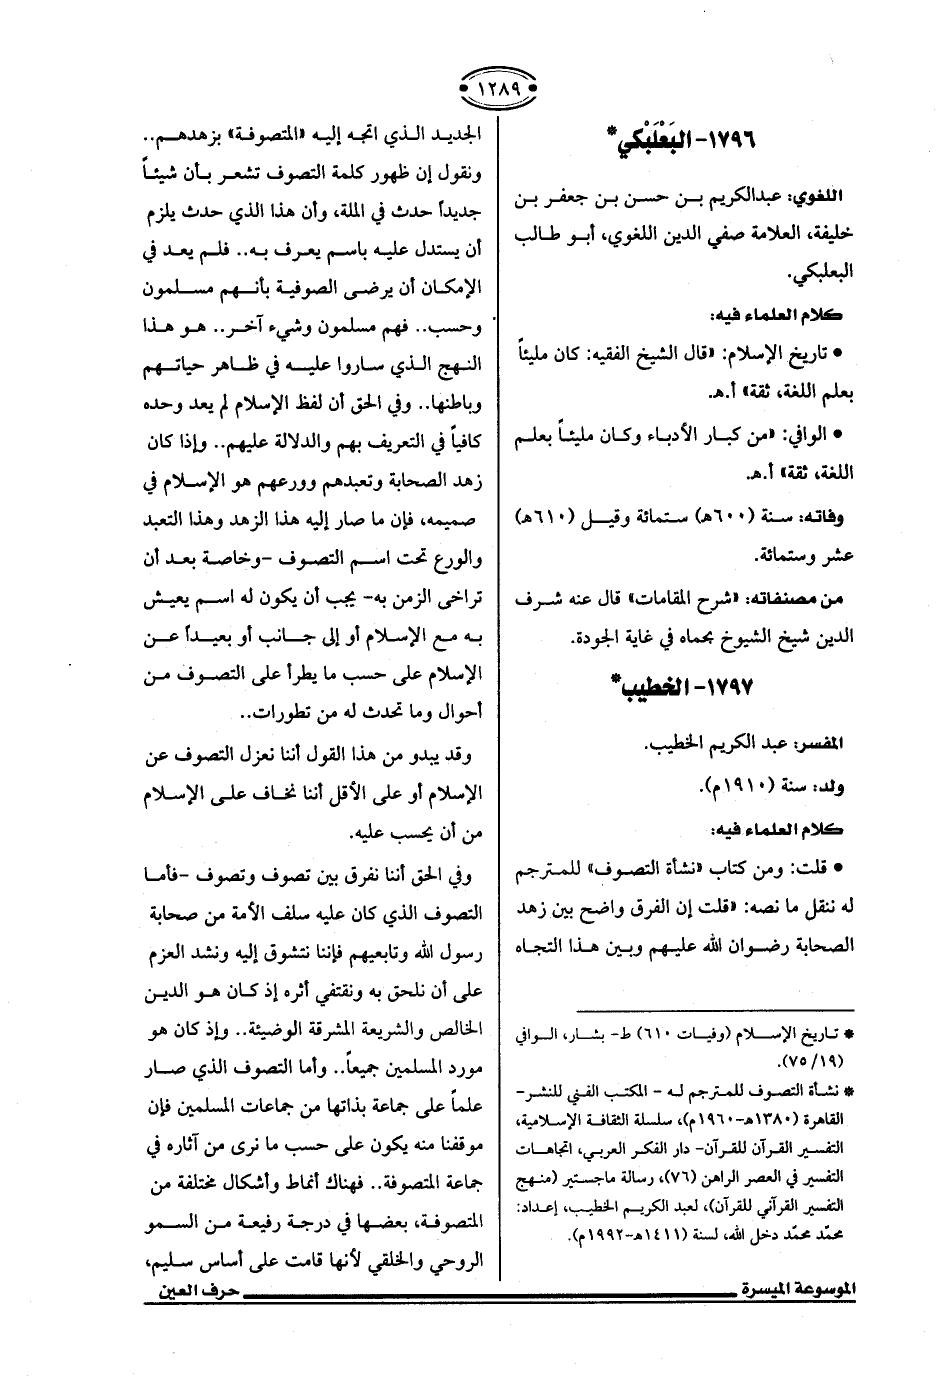 ١٢٨٩
١٧٩٦- البَعْلَبْكي*
اللغوي: عبدالكريم بن حسن بن جعفر بن
خليفة، العلامة صفي الدين اللغوي، أبو طالب
البعلبكي.
كلام العلماء فيه:
• تاريخ الإسلام: «قال الشيخ الفقيه: كان مليئاً
بعلم اللغة، ثقة» أ.هـ.
• الوافي: «من كبار الأدباء وكان مليئاً بعلم
اللغة، ثقة» أ.هـ.
وفاته: سنة (٦٠٠هـ) ستمائة وقيل (٦١٠هـ)
عشر وستمائة.
من مصنفاته: «شرح المقامات» قال عنه شرف
الدين شيخ الشيوخ بحماه في غاية الجودة.
١٧٩٧- الخطيب*
المفسر: عبد الكريم الخطيب.
ولد: سنة (١٩١٠م).
كلام العلماء فيه:
• قلت: ومن كتاب «نشأة التصوف» للمترجم
له ننقل ما نصه: «قلت إن الفرق واضح بين زهد
الصحابة رضوان الله عليهم وبين هذا التجاه
* تاريخ الإسلام (وفيات ٦١٠) ط- بشار، الوافي
(١٩/ ٧٥).
* نشأة التصوف للمترجم له - المكتب الفني للنشر-
القاهرة (١٣٨٠هـ-١٩٦٠م)، سلسلة الثقافة الإسلامية،
التفسير القرآن للقرآن- دار الفكر العربي، اتجاهات
التفسير في العصر الراهن (٧٦)، رسالة ماجستير (منهج
التفسير القرآني للقرآن)، لعبد الكريم الخطيب، إعداد:
محمّد محمّد دخل الله، لسنة (١٤١١هـ-١٩٩٢م).
الجديد الذي اتجه إليه «المتصوفة» بزهدهم..
ونقول إن ظهور كلمة التصوف تشعر بأن شيئاً
جديداً حدث في الملة، وأن هذا الذي حدث يلزم
أن يستدل عليه باسم يعرف به.. فلم يعد في
الإمكان أن يرضى الصوفية بأنهم مسلمون
وحسب.. فهم مسلمون وشيء آخر.. هو هذا
النهج الذي ساروا عليه في ظاهر حياتهم
وباطنها.. وفي الحق أن لفظ الإسلام لم يعد وحده
كافياً في التعريف بهم والدلالة عليهم.. وإذا كان
زهد الصحابة وتعبدهم وورعهم هو الإسلام في
صميمه، فإن ما صار إليه هذا الزهد وهذا التعبد
والورع تحت اسم التصوف -وخاصة بعد أن
تراخى الزمن به- يجب أن يكون له اسم يعيش
به مع الإسلام أو إلى جانب أو بعيداً عن
الإسلام على حسب ما يطرأ على التصوف من
أحوال وما تحدث له من تطورات..
وقد يبدو من هذا القول أننا نعزل التصوف عن
الإسلام أو على الأقل أننا نخاف على الإسلام
من أن يحسب عليه.
وفي الحق أننا نفرق بين تصوف وتصوف -فأما
التصوف الذي كان عليه سلف الأمة من صحابة
رسول الله وتابعيهم فإننا نتشوق إليه ونشد العزم
على أن نلحق به ونقتفي أثره إذ كان هو الدين
الخالص والشريعة المشرقة الوضيئة.. وإذ كان هو
مورد المسلمين جميعاً.. وأما التصوف الذي صار
علماً على جماعة بذاتها من جماعات المسلمين فإن
موقفنا منه يكون على حسب ما نرى من آثاره في
جماعة المتصوفة.. فهناك أنماط وأشكال مختلفة من
المتصوفة، بعضها في درجة رفيعة من السمو
الروحي والخلقي لأنها قامت على أساس سليم،
الموسوعة الميسرة
حرف العين